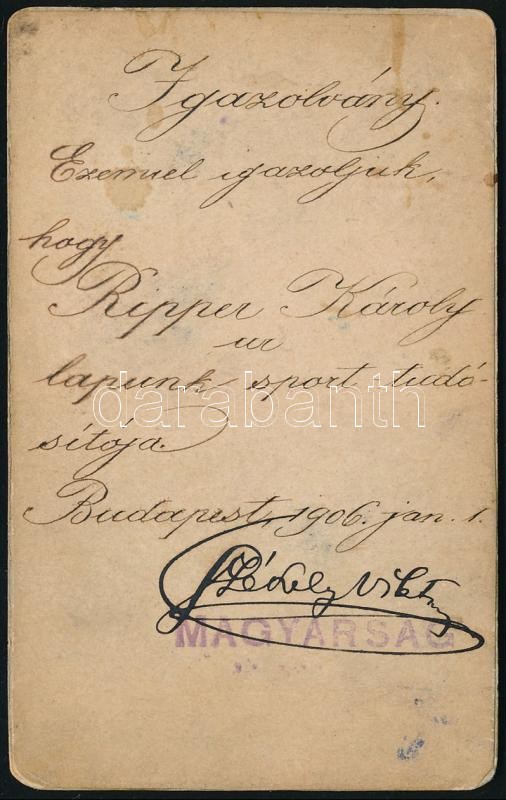 Igazolvány.
Ezennel igazoljuk,
hogy
Ripper Károly
ur
lapunk sport tudó-
sítója.
Budapest, 1906. jan. 1.
Székely Viktor
MAGYARSÁG
darabanth